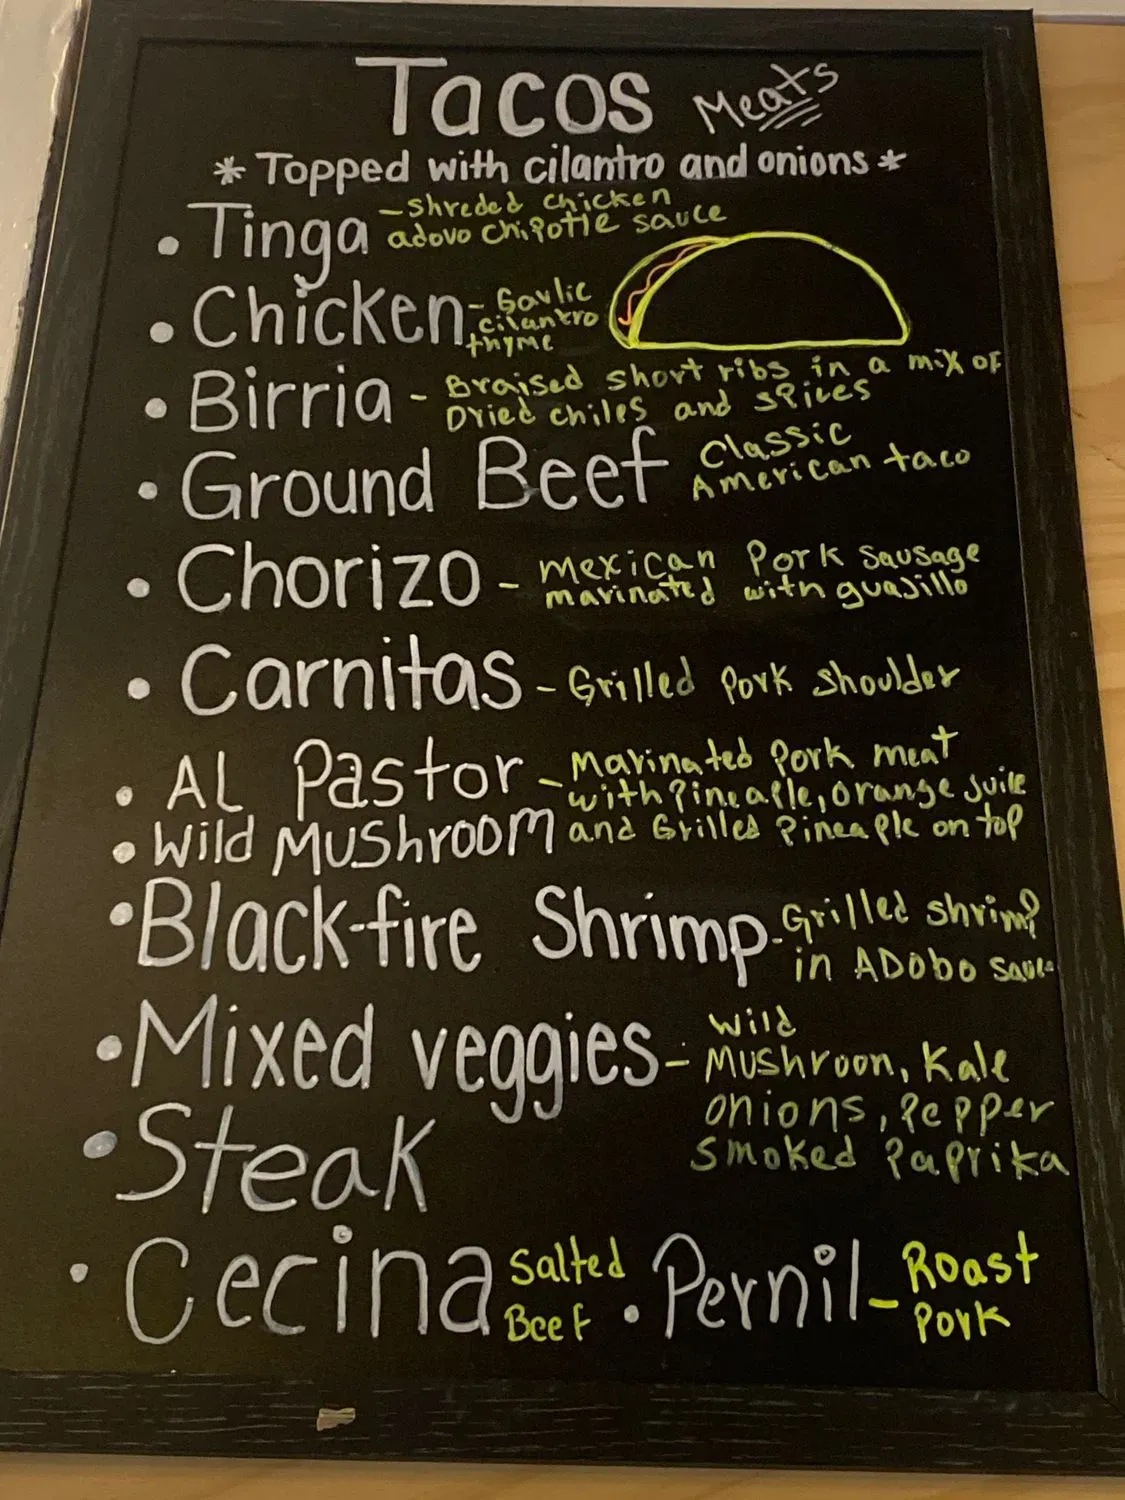 Tacos Meats
* Topped with cilantro and onions *
• Tinga - shreded chicken
adovo chipotle sauce
• Chicken - Garlic
cilantro
thyme
• Birria - Braised short ribs in a mix of
Dried chiles and spices
• Ground Beef Classic
American taco
• Chorizo - mexican Pork sausage
marinated with guajillo
• Carnitas - Grilled pork shoulder
• AL Pastor - Marinated pork meat
with Pineaple, orange juice
and Grilled Pineaple on top
• Wild MUShROOM
• Black-fire Shrimp - Grilled shrimp
in ADobo sauce
• Mixed veggies - Wild
MUShroon, Kale
onions, Pepper
smoked Paprika
• Steak
• Cecina Salted
Beef
• Pernil - Roast
Pork